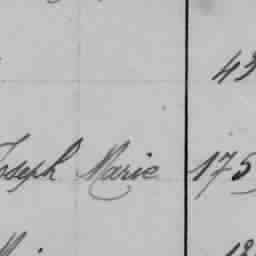 43
Joseph Marie 175